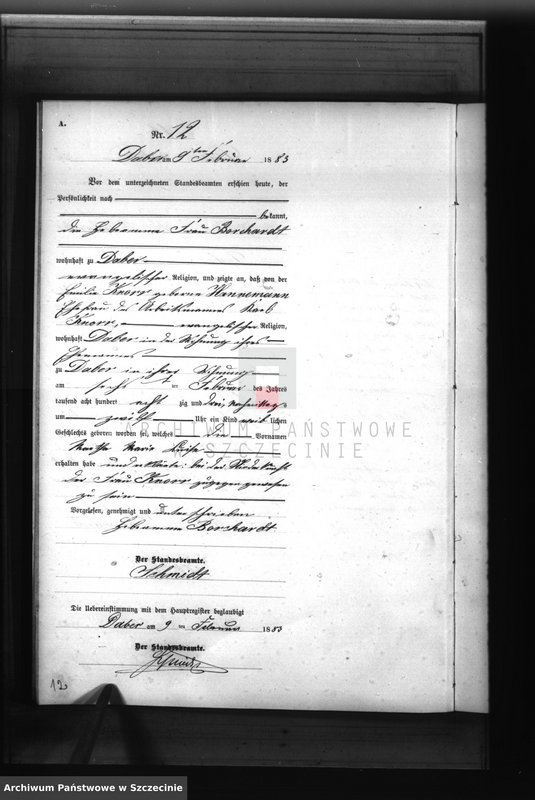 A.
Nr. 12
Daber am 9ten Februar 1883
Vor dem unterzeichneten Standesbeamten erschien heute, der
Persönlichkeit nach
bekannt,
die Hebeamme Frau Borchardt
wohnhaft zu Daber
evangelischer Religion, und zeigte an, daß von der
Emilie Knorr geborene Hennemann
Ehefrau des Arbeitsmannes Karl
Knorr, evangelischer Religion,
wohnhaft Daber in der Wohnung ihres
Ehemannes
zu Daber in ihrer Wohnung
am ten Februar des Jahres
tausend acht hundert acht zig und drei, Nachmittags
um zwölf Uhr ein Kind weib lichen
Geschlechts geboren worden sei, welches die Vornamen
Martha Marie Luise
erhalten habe und erklärte, bei der Niederkunft
der Frau Knorr zugegen gewesen
zu sein
Vorgelesen, genehmigt und unterschrieben
Hebeamme Borchardt
Der Standesbeamte.
Schmidt
Die Uebereinstimmung mit dem Hauptregister beglaubigt
Daber am 9 ten Februar 1883
Der Standesbeamte.
Schmidt
12
ARCHIWUM PAŃSTWOWE
W SZCZECINIE
Archiwum Państwowe w Szczecinie